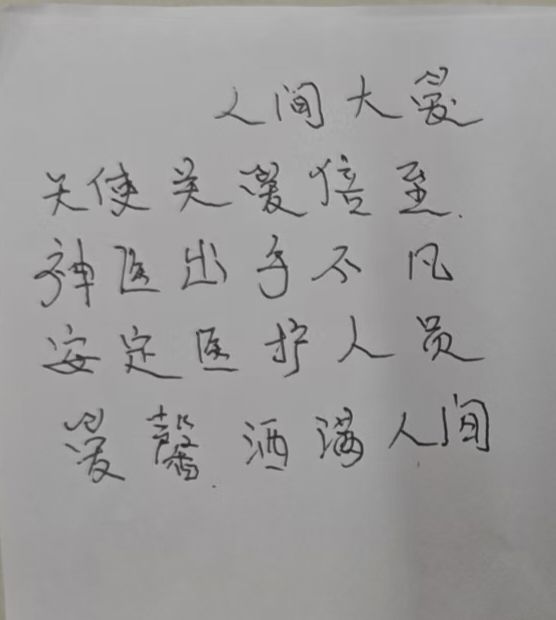 人间大爱
天使关爱倍至.
神医出手不凡
安定医护人员
爱馨洒满人间